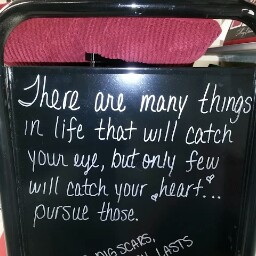 There are many things
in life that will catch
your eye, but only few
will catch your heart...
pursue those.
BIG SCARS,
LASTS